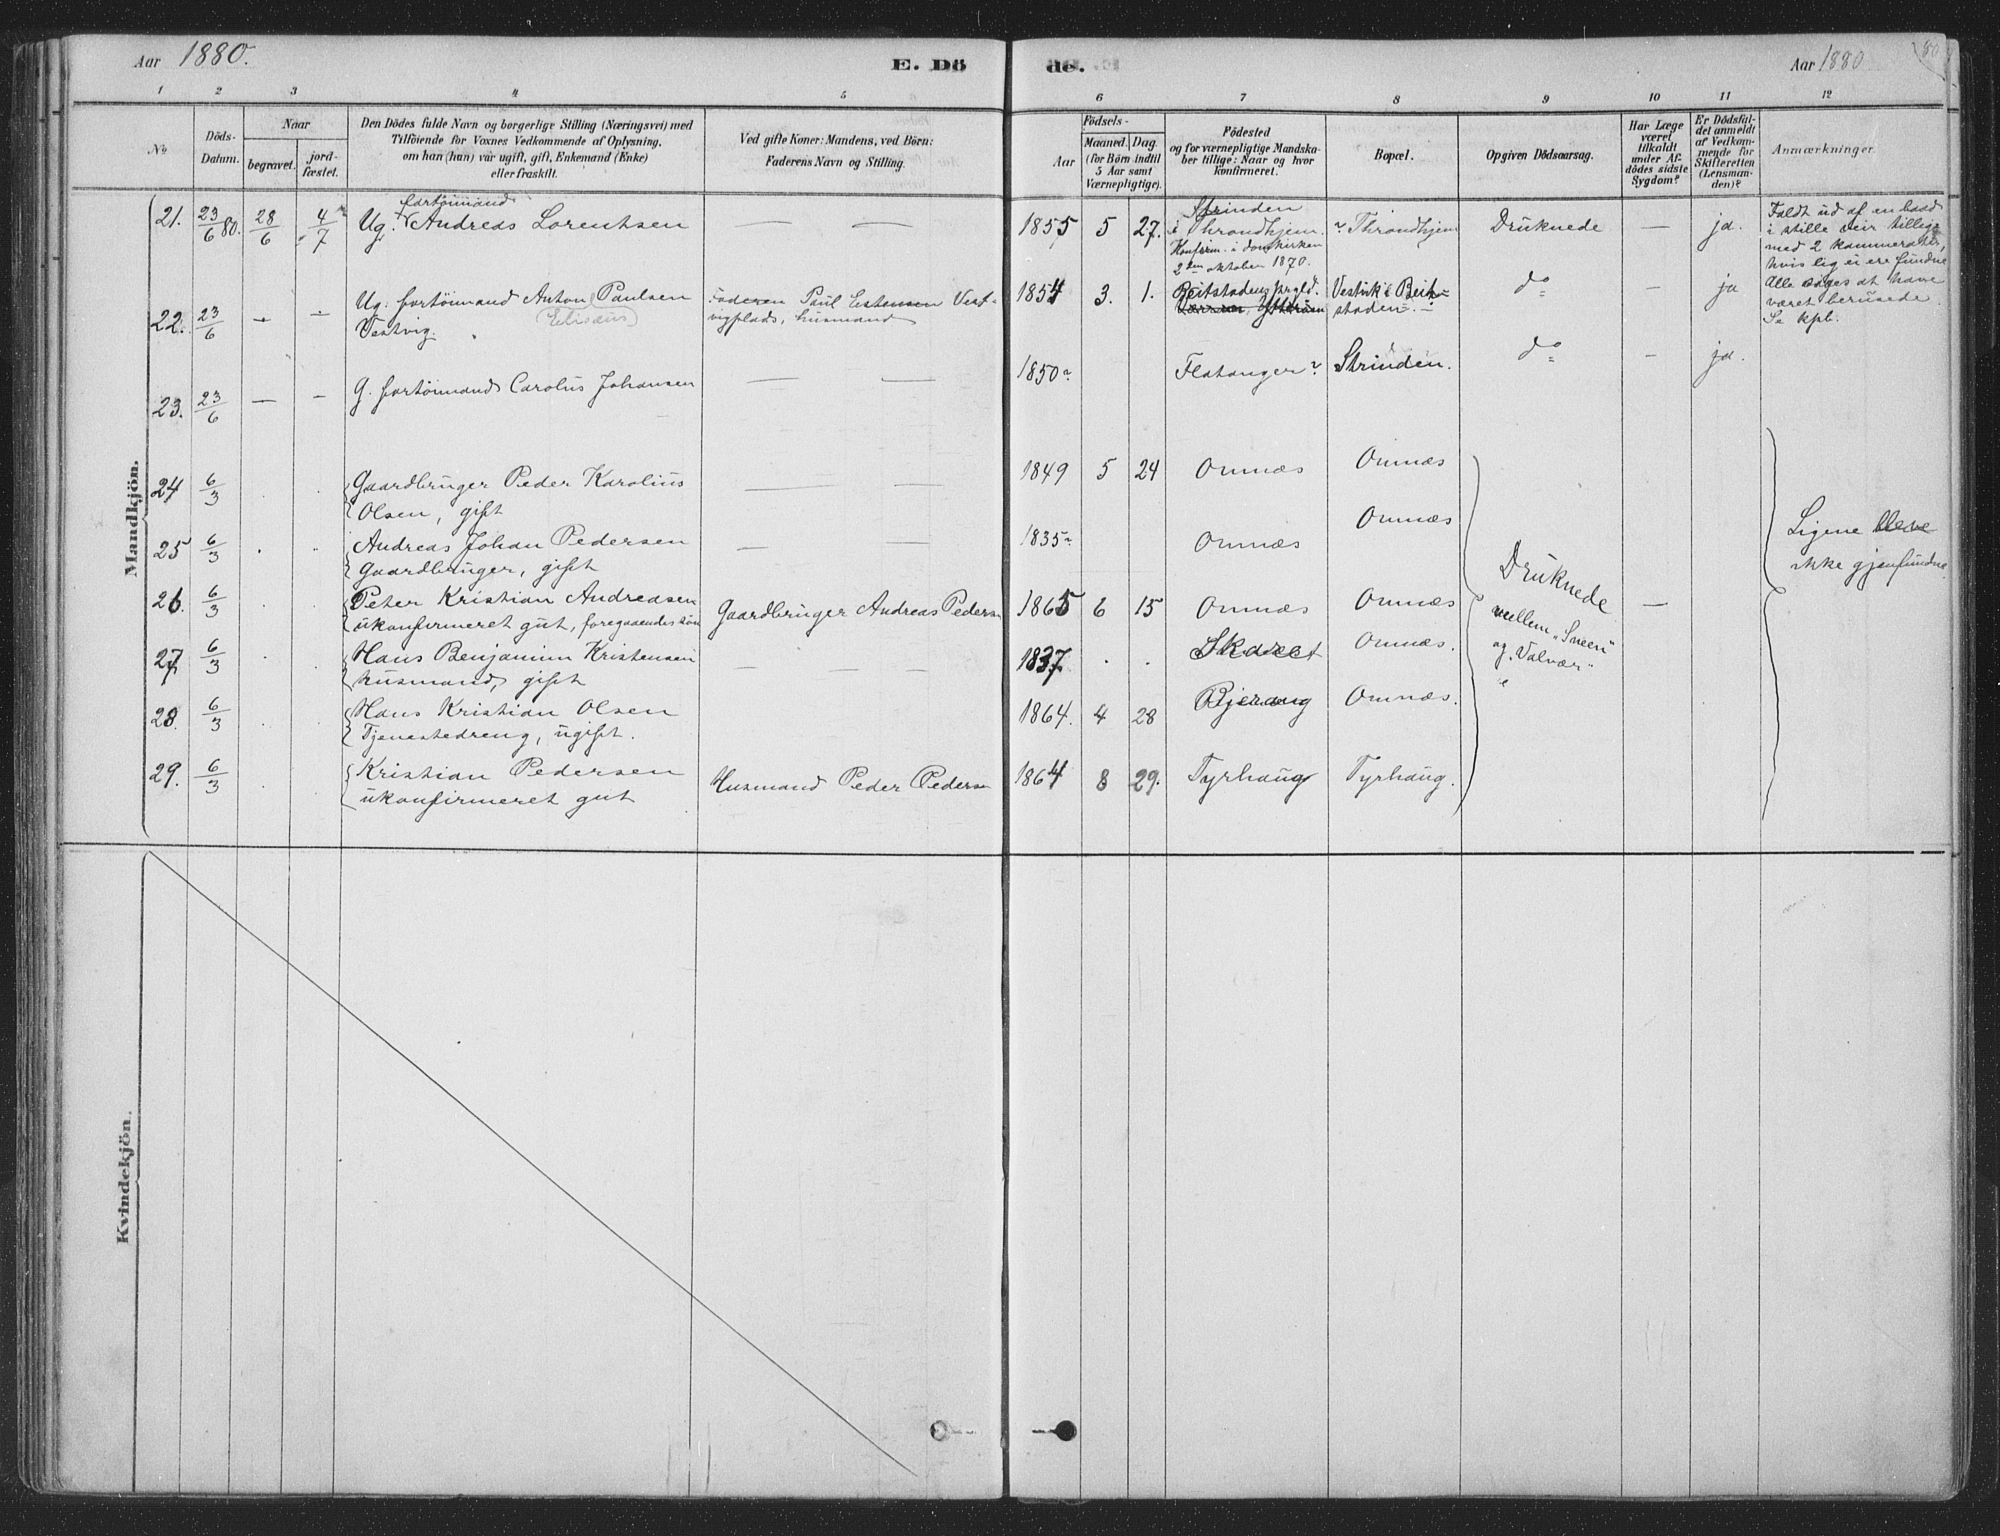 Aar 1880.
E. Dö
de.
Aar 1880
1 2 3 4 5 6 7 8 9 10 11 12
No
Döds-
Datum.
Naar
begravet.
jord-
fæstet.
Den Dödes fulde Navn og borgerlige Stilling (Næringsvei) med
Tilföiende for Voxnes Vedkommende af Oplysning,
om han (hun) var ugift, gift, Enkemand (Enke)
eller fraskilt.
Ved gifte Koner: Mandens, ved Börn:
Faderens Navn og Stilling.
Födsels-
Aar
Maaned.
Dag.
(for Börn indtil
5 Aar samt
Værnepligtige).
Födested
og for værnepligtige Mandska-
ber tillige: Naar og hvor
konfirmeret.
Bopæl.
Opgiven Dödsaarsag.
Har Læge
været
tilkaldt
under Af-
dödes sidste
Sygdom?
Er Dödsfal-
det anmeldt
af Vedkom-
mende for
Skifteretten
(Lensman-
den)?
Anmærkninger.
Mandkjön.
21. 23/6 80. 28/6 4/7
fartöimand
Ug. Andreas Lorentsen — —
1855 5 27.
Strinden
i Throndhjem.
Konfirm. i domkirken
2den oktober 1870.
Throndhjem
Druknede — ja.
Faldt ud af en baad
i stille veir tillige
med 2 kammerater,
hvis lig ei ere fundne
Alle siges at have
været berusede.
Se kpb.
22. 23/6 - -
Ug. fartöimand Anton Paulsen
(Elisæus)
Vestvig.
Faderen Paul Estensen Vest-
vigplads, husmand
1854 3. 1.
Beitstadens prgld.
Ytterøen
Vestvik i Beit-
staden.
do — ja
23. 23/6 — -
G. fartöimand Carolus Johansen — —
1850 Flatanger Strinden. do — ja.
24 6/3
Gaardbruger Peder Karolius
Olsen, gift
— —
1849 5 24 Onnæs Onnæs
25 6/3
Andreas Johan Pedersen
Gaardbruger, gift
— —
1835 Onnæs Onnæs
26. 6/3
Peter Kristian Andreasen
ukonfirmeret gut, foregaaendes sön
Gaardbruger Andreas Pedersn
1865 6 15 Onnæs Onnæs —
27 6/3
Hans Benjamin Kristensen
husmand, gift
— —
1837 . . Skaret Onnæs.
28. 6/3
Hans Kristian Olsen
Tjenestedreng, ugift.
1864. 4 28 Bjerang Onnæs.
29. 6/3
Kristian Pedersen
ukonfirmeret gut
Husmand Peder Pedersn
1864 8 29. Tyrhaug Tyrhaug.
Druknede
mellem "Sneen"
og "Valvær"
Ligene bleve
ikke gjenfundne
Kvindekjön.